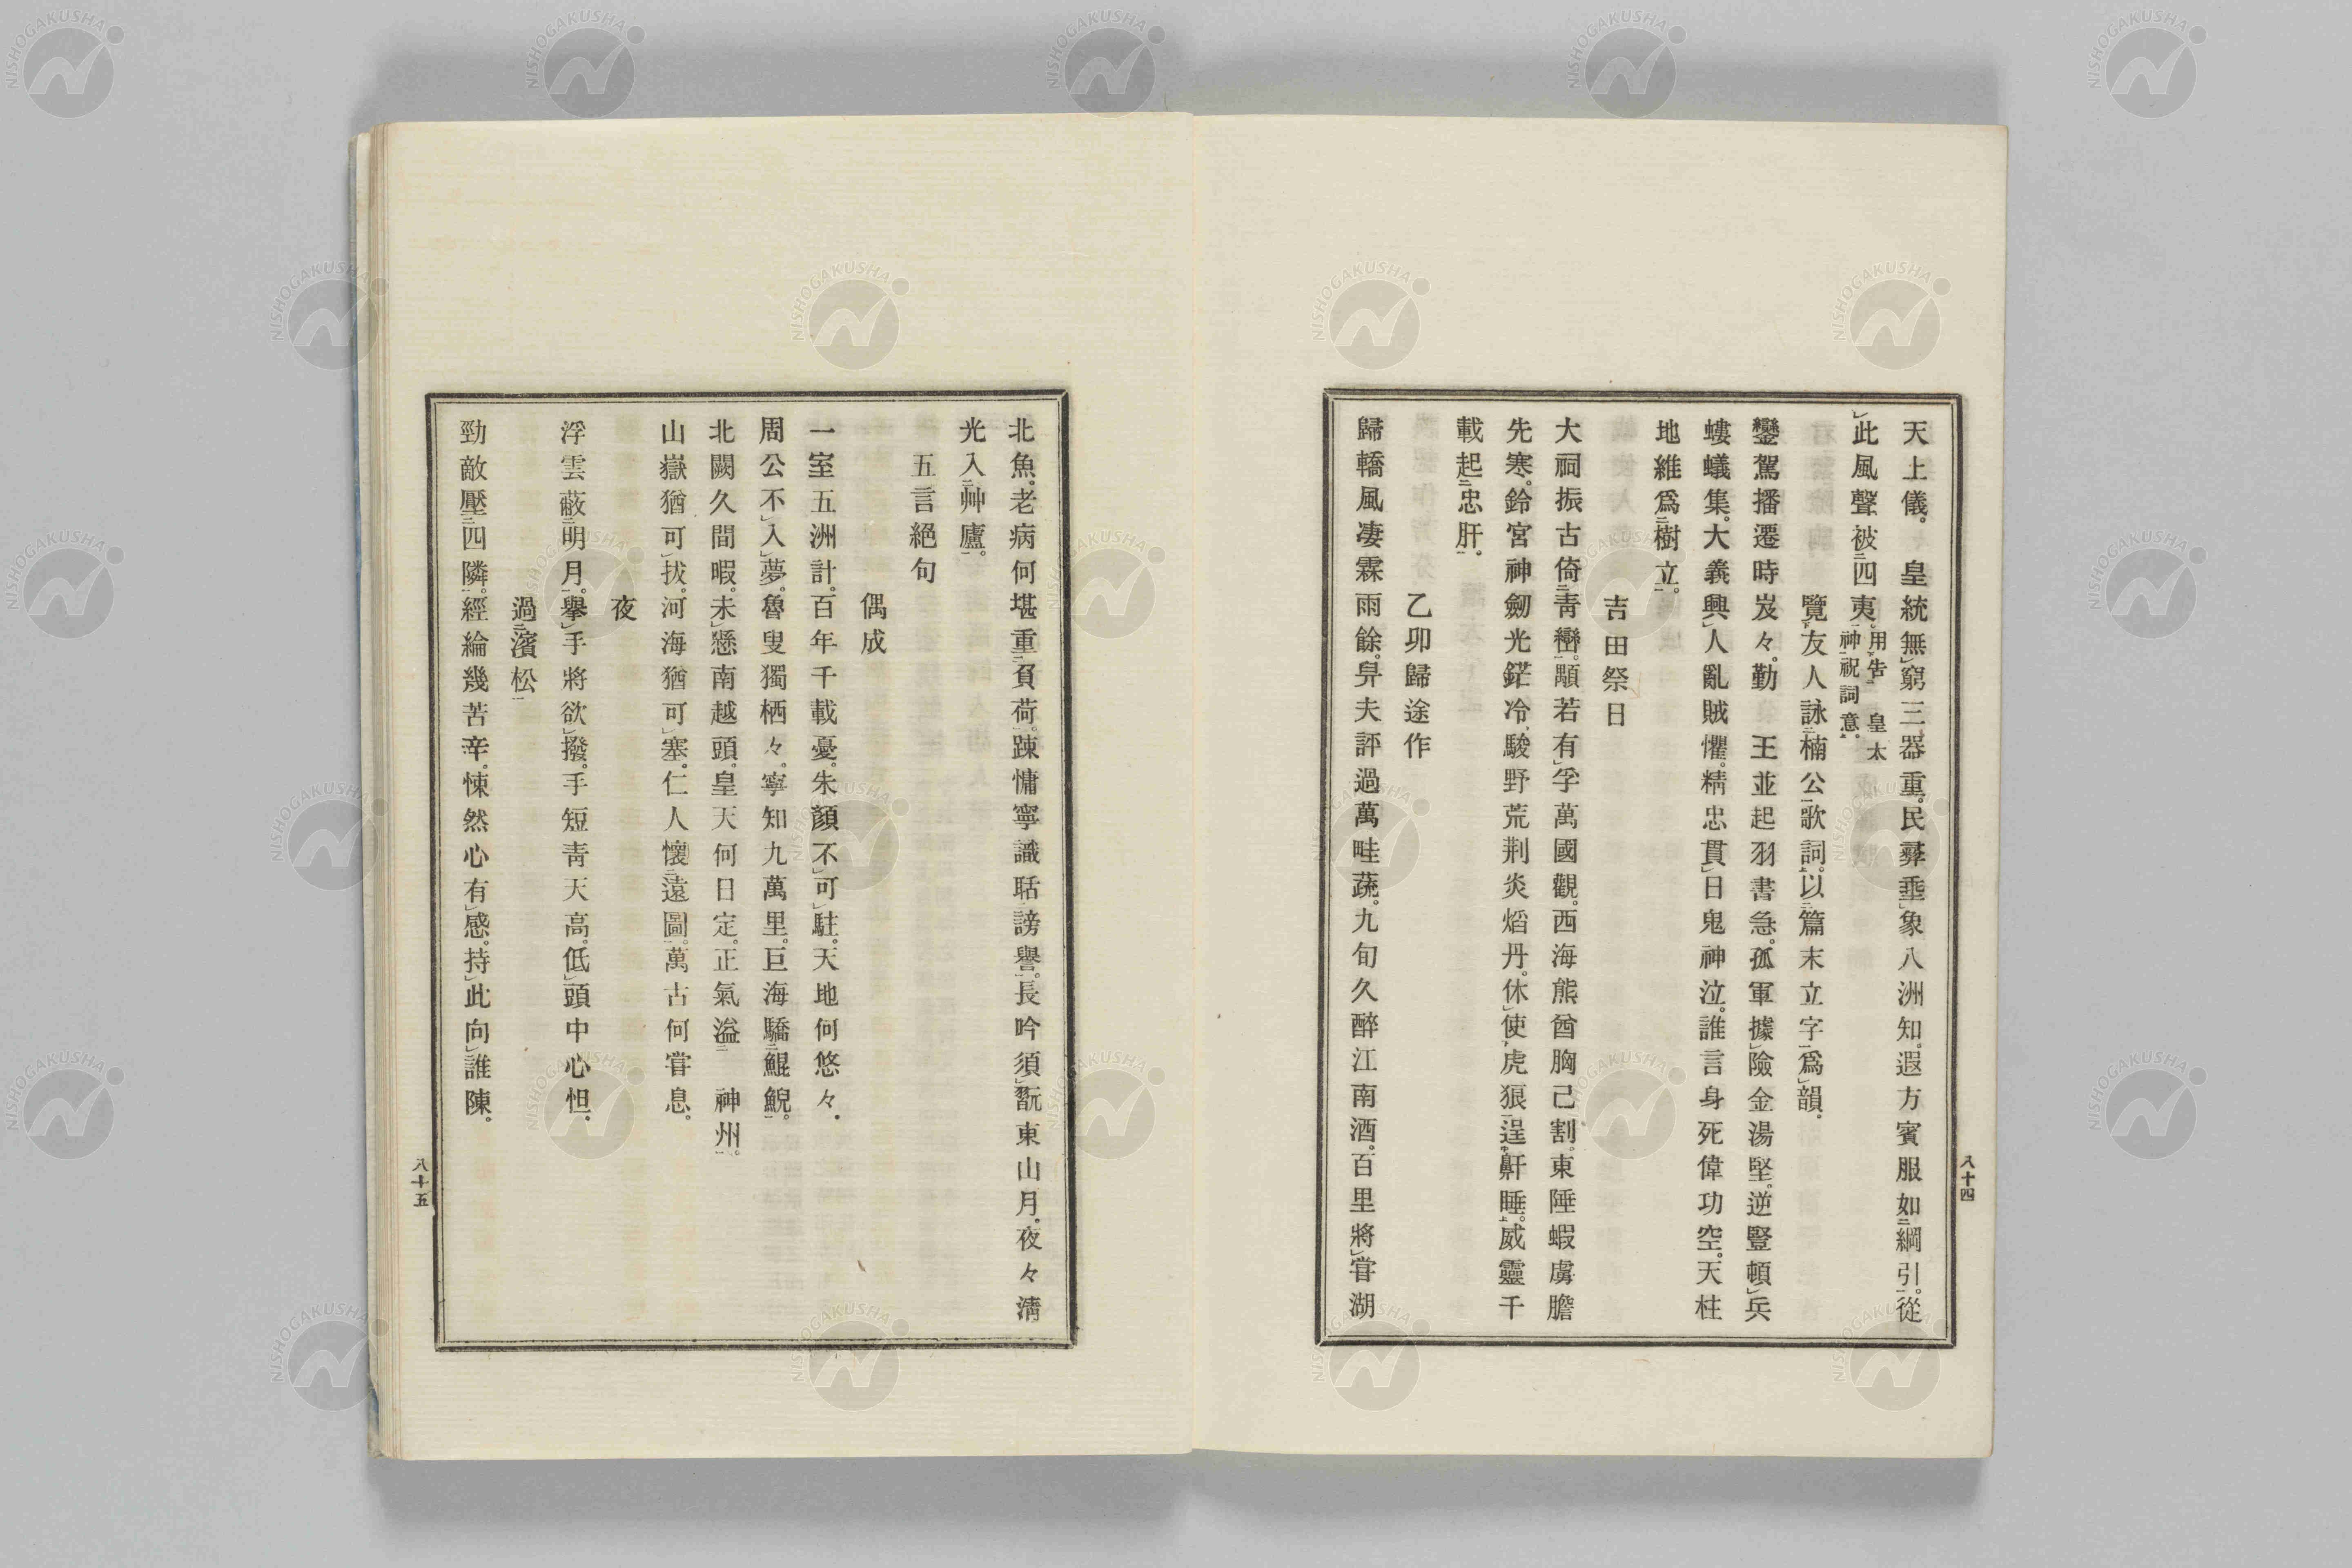 天上儀。皇統無窮三器重。民彝垂象八洲知。遐方賓服如綱引。從
此風聲被四夷。用告皇太神祝詞意。
覽友人詠楠公歌詞。以篇末立字爲韻。
鑾駕播遷時岌々。勤王並起羽書急。孤軍據險金湯堅。逆豎頓兵
螻蟻集。大義興人亂賊懼。精忠貫日鬼神泣。誰言身死偉功空。天柱
地維爲樹立。
吉田祭日
大祠振古倚靑巒。顒若有孚萬國觀。西海熊酋胸己割。東陲蝦虜膽
先寒。鈴宮神劒光鋩冷、駿野荒荆炎熖丹。休使虎狼逞鼾睡。威靈千
載起忠肝。
乙卯歸途作
歸轎風凄霖雨餘。舁夫評過萬畦蔬。九旬久醉江南酒。百里將甞湖
八十四
北魚。老病何堪重負荷。踈慵寧識聒謗譽。長吟須翫東山月。夜々淸
光入艸廬。
五言絕句
偶成
一室五洲計。百年千載憂。朱顏不可駐。天地何悠々。
周公不入夢。魯叟獨栖々。寧知九萬里。巨海驕鯤鯢。
北闕久間暇。未懸南越頭。皇天何日定。正氣溢神州。
山嶽猶可拔。河海猶可塞。仁人懷遠圖。萬古何甞息。
夜
浮雲蔽明月。擧手將欲撥。手短靑天高。低頭中心怛。
過濱松
勁敵壓四隣。經綸幾苦辛。悚然心有感。持此向誰陳。
八十五
NISHOGAKUSHA